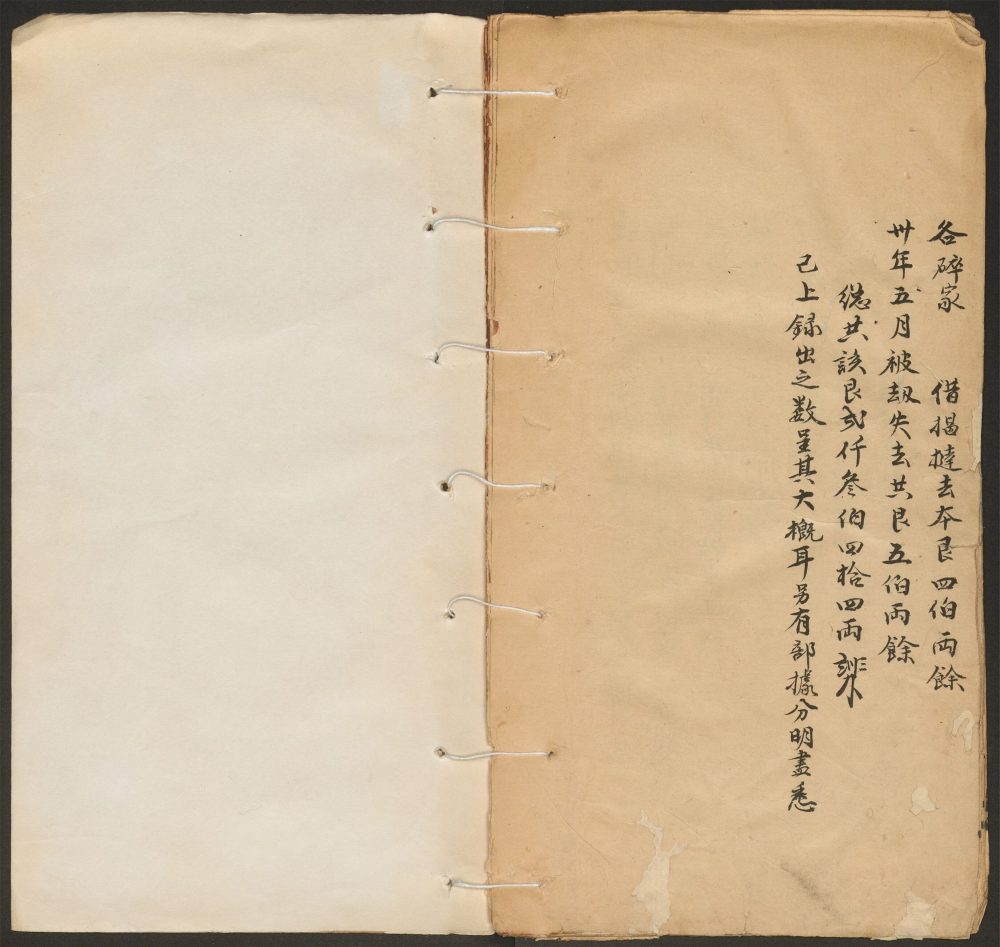 各碎家 借揭撻去本艮四伯両餘
卅年五月被刼失去共艮五伯両餘
緫共該艮弍仟叁伯四拾四両
已上録出之数呈其大概耳另有部據分明盡悉